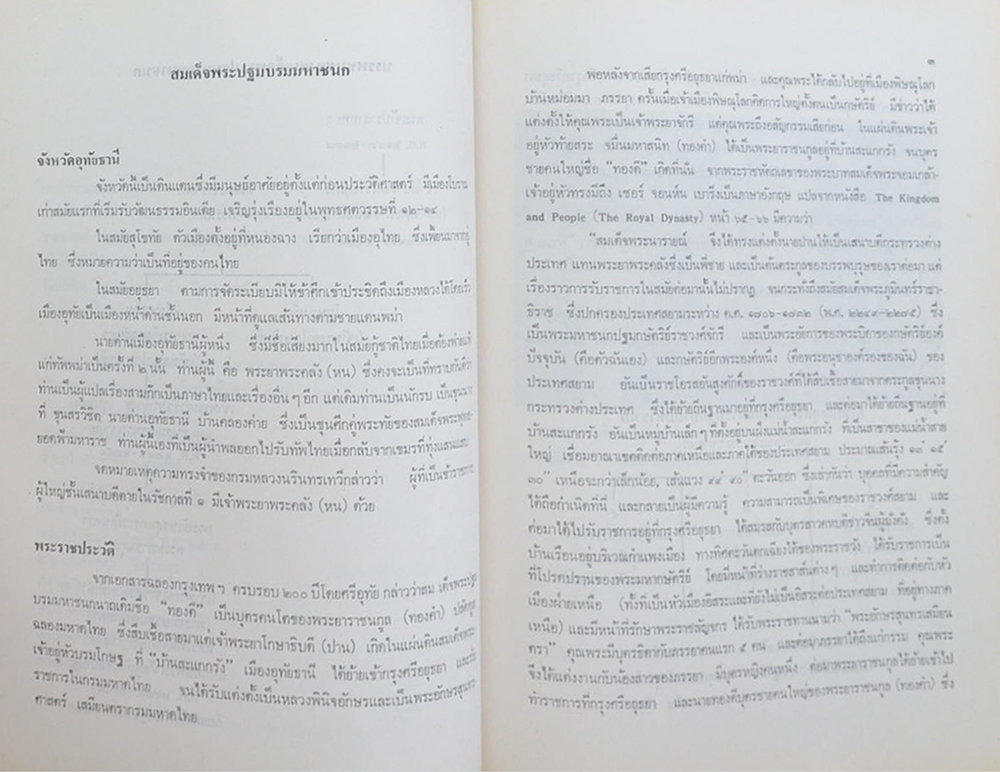 สมเด็จพระปฐมบรมมหาชนก
จังหวัดอุทัยธานี
จังหวัดนี้เป็นดินแดนซึ่งมีมนุษย์อาศัยอยู่ตั้งแต่ก่อนประวัติศาสตร์ มีเมืองโบราณ
เก่าสมัยแรกที่เริ่มรับวัฒนธรรมอินเดีย เจริญรุ่งเรืองอยู่ในพุทธศตวรรษที่ ๑๒-๑๔
ในสมัยสุโขทัย ตัวเมืองตั้งอยู่ที่หนองฉาง เรียกว่าเมืองอูไทย ซึ่งเพี้ยนมาจากอู่
ไทย ซึ่งหมายความว่าเป็นที่อยู่ของคนไทย
ในสมัยอยุธยา ตามการจัดระเบียบมิให้ข้าศึกเข้าประชิดถึงเมืองหลวงได้โดยเร็ว
เมืองอุทัยเป็นเมืองหน้าด่านชั้นนอก มีหน้าที่ดูแลเส้นทางตามชายแดนพม่า
นายด่านเมืองอุทัยธานีผู้หนึ่ง ซึ่งมีชื่อเสียงมากในสมัยกู้ชาติไทยเมื่อต้องพ่ายแพ้
แก่ทัพพม่าเป็นครั้งที่ ๒ นั้น ท่านผู้นี้ คือ พระยาพระคลัง (หน) ซึ่งคงจะเป็นที่ทราบกันดีว่า
ท่านเป็นผู้แปลเรื่องสามก๊กเป็นภาษาไทยและเรื่องอื่น ๆ อีก แต่เดิมท่านเป็นนักรบ เป็นขุนนาง
ที่ ขุนสรวิชิต นายด่านอุทัยธานี บ้านคลองค่าย ซึ่งเป็นขุนศึกคู่พระทัยของสมเด็จพระพุทธ
ยอดฟ้ามหาราช ท่านผู้นี้เองที่เป็นผู้นำพลออกไปรับทัพไทยเมื่อกลับจากเขมรที่ทุ่งแสนแสบ
จดหมายเหตุความทรงจำของกรมหลวงนรินทรเทวีกล่าวว่า ผู้ที่เป็นข้าราชการ
ผู้ใหญ่ชั้นเสนาบดีตายในรัชกาลที่ ๑ มีเจ้าพระยาพระคลัง (หน) ด้วย
พระราชประวัติ
จากเอกสารฉลองกรุงเทพฯ ครบรอบ ๒๐๐ ปีโดยศรีอุทัย กล่าวว่าสมเด็จพระปฐม
บรมมหาชนกนาถเดิมชื่อ "ทองดี" เป็นบุตรคนโตของพระยาราชนกูล (ทองคำ) ปลัดทูล
ฉลองมหาดไทย ซึ่งสืบเชื้อสายมาแต่เจ้าพระยาโกษาธิบดี (ปาน) เกิดในแผ่นดินสมเด็จพระ
เจ้าอยู่หัวบรมโกษฐ ที่ "บ้านสะแกกรัง" เมืองอุทัยธานี ได้ย้ายเข้ากรุงศรีอยุธยา และรับ
ราชการในกรมมหาดไทย จนได้รับแต่งตั้งเป็นหลวงพินิจอักษรและเป็นพระอักษรสุนทร
ศาสตร์ เสมียนตรากรมมหาดไทย
๓
พอหลังจากเสียกรุงศรีอยุธยาแก่พม่า และคุณพระได้กลับไปอยู่ที่เมืองพิษณุโลก
บ้านหม่อมมา ภรรยา ครั้นเมื่อเจ้าเมืองพิษณุโลกคิดการใหญ่ตั้งตนเป็นกษัตริย์ มีข่าวว่าได้
แต่งตั้งให้คุณพระเป็นเจ้าพระยาจักรี แต่คุณพระถึงอสัญกรรมเสียก่อน ในแผ่นดินพระเจ้า
อยู่หัวท้ายสระ จมื่นมหาสนิท (ทองคำ) ได้เป็นพระยาราชนกูลอยู่ที่บ้านสะแกกรัง จนบุตร
ชายคนใหญ่ชื่อ "ทองดี" เกิดที่นั่น จากพระราชหัตถเลขาของพระบาทสมเด็จพระจอมเกล้า-
เจ้าอยู่หัวทรงมีถึง เซอร์ จอนห์น เบาริ่งเป็นภาษาอังกฤษ แปลจากหนังสือ The Kingdom
and People (The Royal Dynasty) หน้า ๖๕-๖๖ มีความว่า
"สมเด็จพระนารายณ์ จึงได้ทรงแต่งตั้งนายปานให้เป็นเสนาบดีกระทรวงต่าง
ประเทศ แทนพระยาพระคลังซึ่งเป็นพี่ชาย และเป็นต้นตระกูลของบรรพบุรุษของเราต่อมา แต่
เรื่องราวการรับราชการในสมัยต่อมานั้นไม่ปรากฏ จนกระทั่งถึงสมัยสมเด็จพระภูมินทร์ราชา-
ธิราช ซึ่งปกครองประเทศสยามระหว่าง ค.ศ. ๑๗๐๖-๑๗๓๒ (พ.ศ. ๒๒๔๙-๒๒๗๕) ซึ่ง
เป็นพระมหาชนกปฐมกษัตริย์ราชวงศ์จักรี และเป็นพระอัยกาของพระบิดาของกษัตริย์องค์
ปัจจุบัน (คือตัวฉันเอง) และกษัตริย์อีกพระองค์หนึ่ง (คือพระอนุชาองค์รองของฉัน) ของ
ประเทศสยาม อันเป็นราชโอรสอันสูงศักดิ์ของราชวงศ์ที่ได้สืบเชื้อสายมาจากตระกูลขุนนาง
กระทรวงต่างประเทศ ซึ่งได้ย้ายถิ่นฐานมาอยู่ที่กรุงศรีอยุธยา และต่อมาได้ย้ายถิ่นฐานอยู่ที่
บ้านสะแกกรัง อันเป็นหมู่บ้านเล็ก ๆ ที่ตั้งอยู่บนฝั่งแม่น้ำสะแกกรัง ที่เป็นสาขาของแม่น้ำสาย
ใหญ่ เชื่อมอาณาเขตติดต่อภาคเหนือและภาคใต้ของประเทศสยาม ประมาณเส้นรุ้ง ๑๕ ๑๕
๓๐" เหนือจะกว่าเล็กน้อย, เส้นแวง ๙๙ ๙๐" ตะวันออก ซึ่งเล่ากันว่า บุคคลที่มีความสำคัญ
ได้ถือกำเนิดที่นี่ และกลายเป็นผู้มีความรู้ ความสามารถเป็นพิเศษของราชวงศ์สยาม และ
ต่อมาได้ไปรับราชการอยู่ที่กรุงศรีอยุธยา ได้สมรสกับบุตรสาวคหบดีชาวจีนผู้มั่งคั่ง ซึ่งตั้ง
บ้านเรือนอยู่บริเวณกำแพงเมือง ทางทิศตะวันตกเฉียงใต้ของพระราชวัง ได้รับราชการเป็น
ที่โปรดปรานของพระมหากษัตริย์ โดยมีหน้าที่ร่างราชสาส์นต่าง ๆ และทำการติดต่อกับหัว
เมืองฝ่ายเหนือ (ทั้งที่เป็นหัวเมืองอิสระและที่ยังไม่เป็นอิสระต่อประเทศสยาม ที่อยู่ทางภาค
เหนือ) และมีหน้าที่รักษาพระราชลัญจกร ได้รับพระราชทานนามว่า "พระอักษรสุนทรเสมียน
ตรา" คุณพระมีบุตรธิดากับภรรยาคนแรก ๕ คน และต่อมาภรรยาได้ถึงแก่กรรม คุณพระ
จึงได้แต่งงานกับน้องสาวของภรรยา มีบุตรหญิงคนหนึ่ง ต่อมาพระยาราชนกูลได้ย้ายเข้าไป
ทำราชการที่กรุงศรีอยุธยา และนายทองดีบุตรชายคนใหญ่ของพระยาราชนกูล (ทองคำ) ซึ่ง